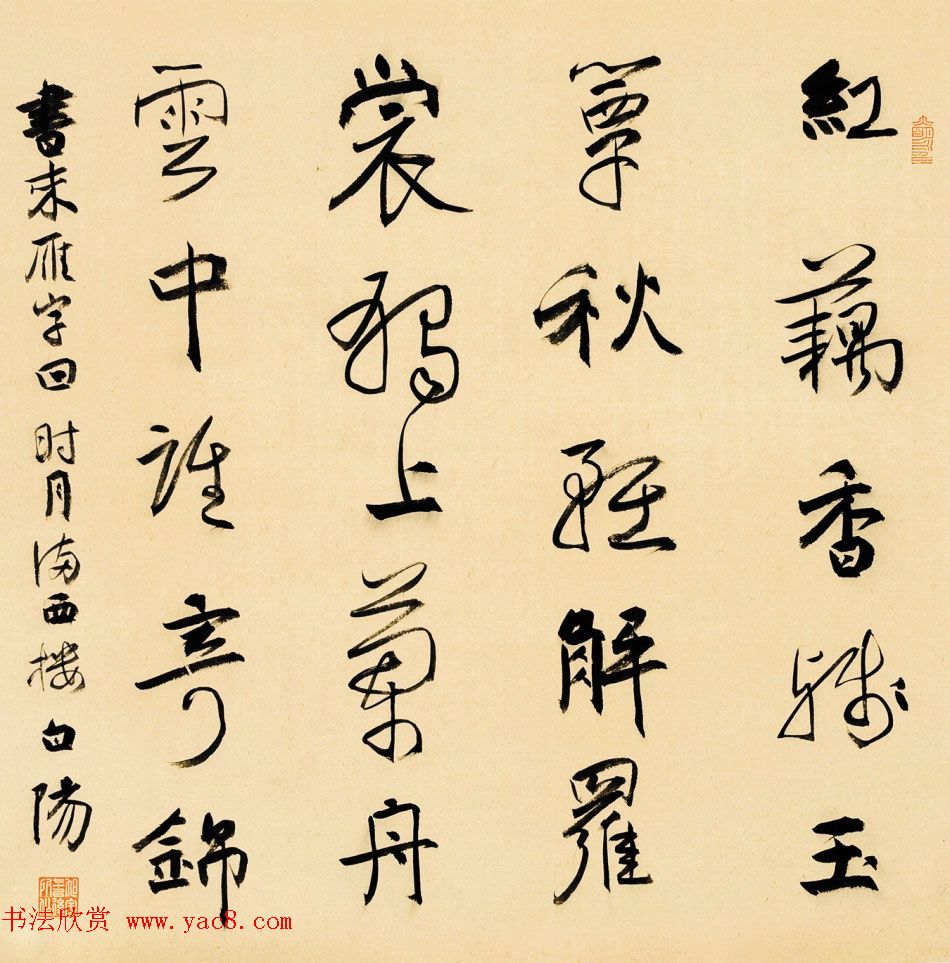 紅藕香殘玉
簟秋輕解羅
裳獨上蘭舟
雲中誰寄錦
書來雁字回时月满西楼 白陽
书法欣赏 www.yac8.com